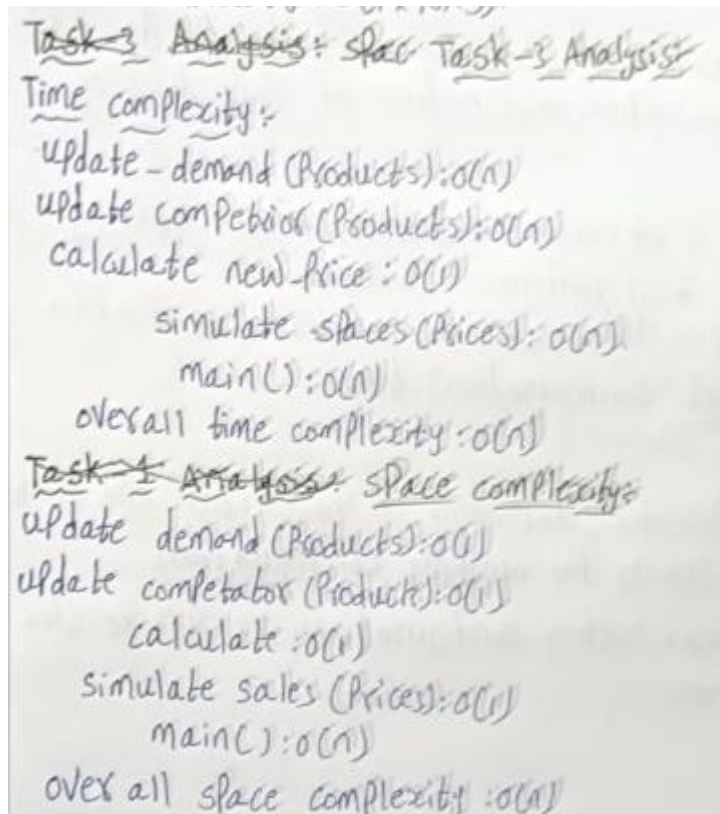 Task-3 Analysis: spac Task-3 Analysis:
Time complexity:
update-demand (Products): o(n)
update competrior (Products): o(n)
calculate new-Price : o(1)
simulate spaces (Prices): o(n)
main() : o(n)
overall time complexity : o(n)
Task-1 Analysis: space complexity:
update demand (Products): o(1)
update competator (Product): o(1)
calculate : o(1)
simulate sales (Prices): o(1)
main() : o(n)
over all space complexity : o(n)